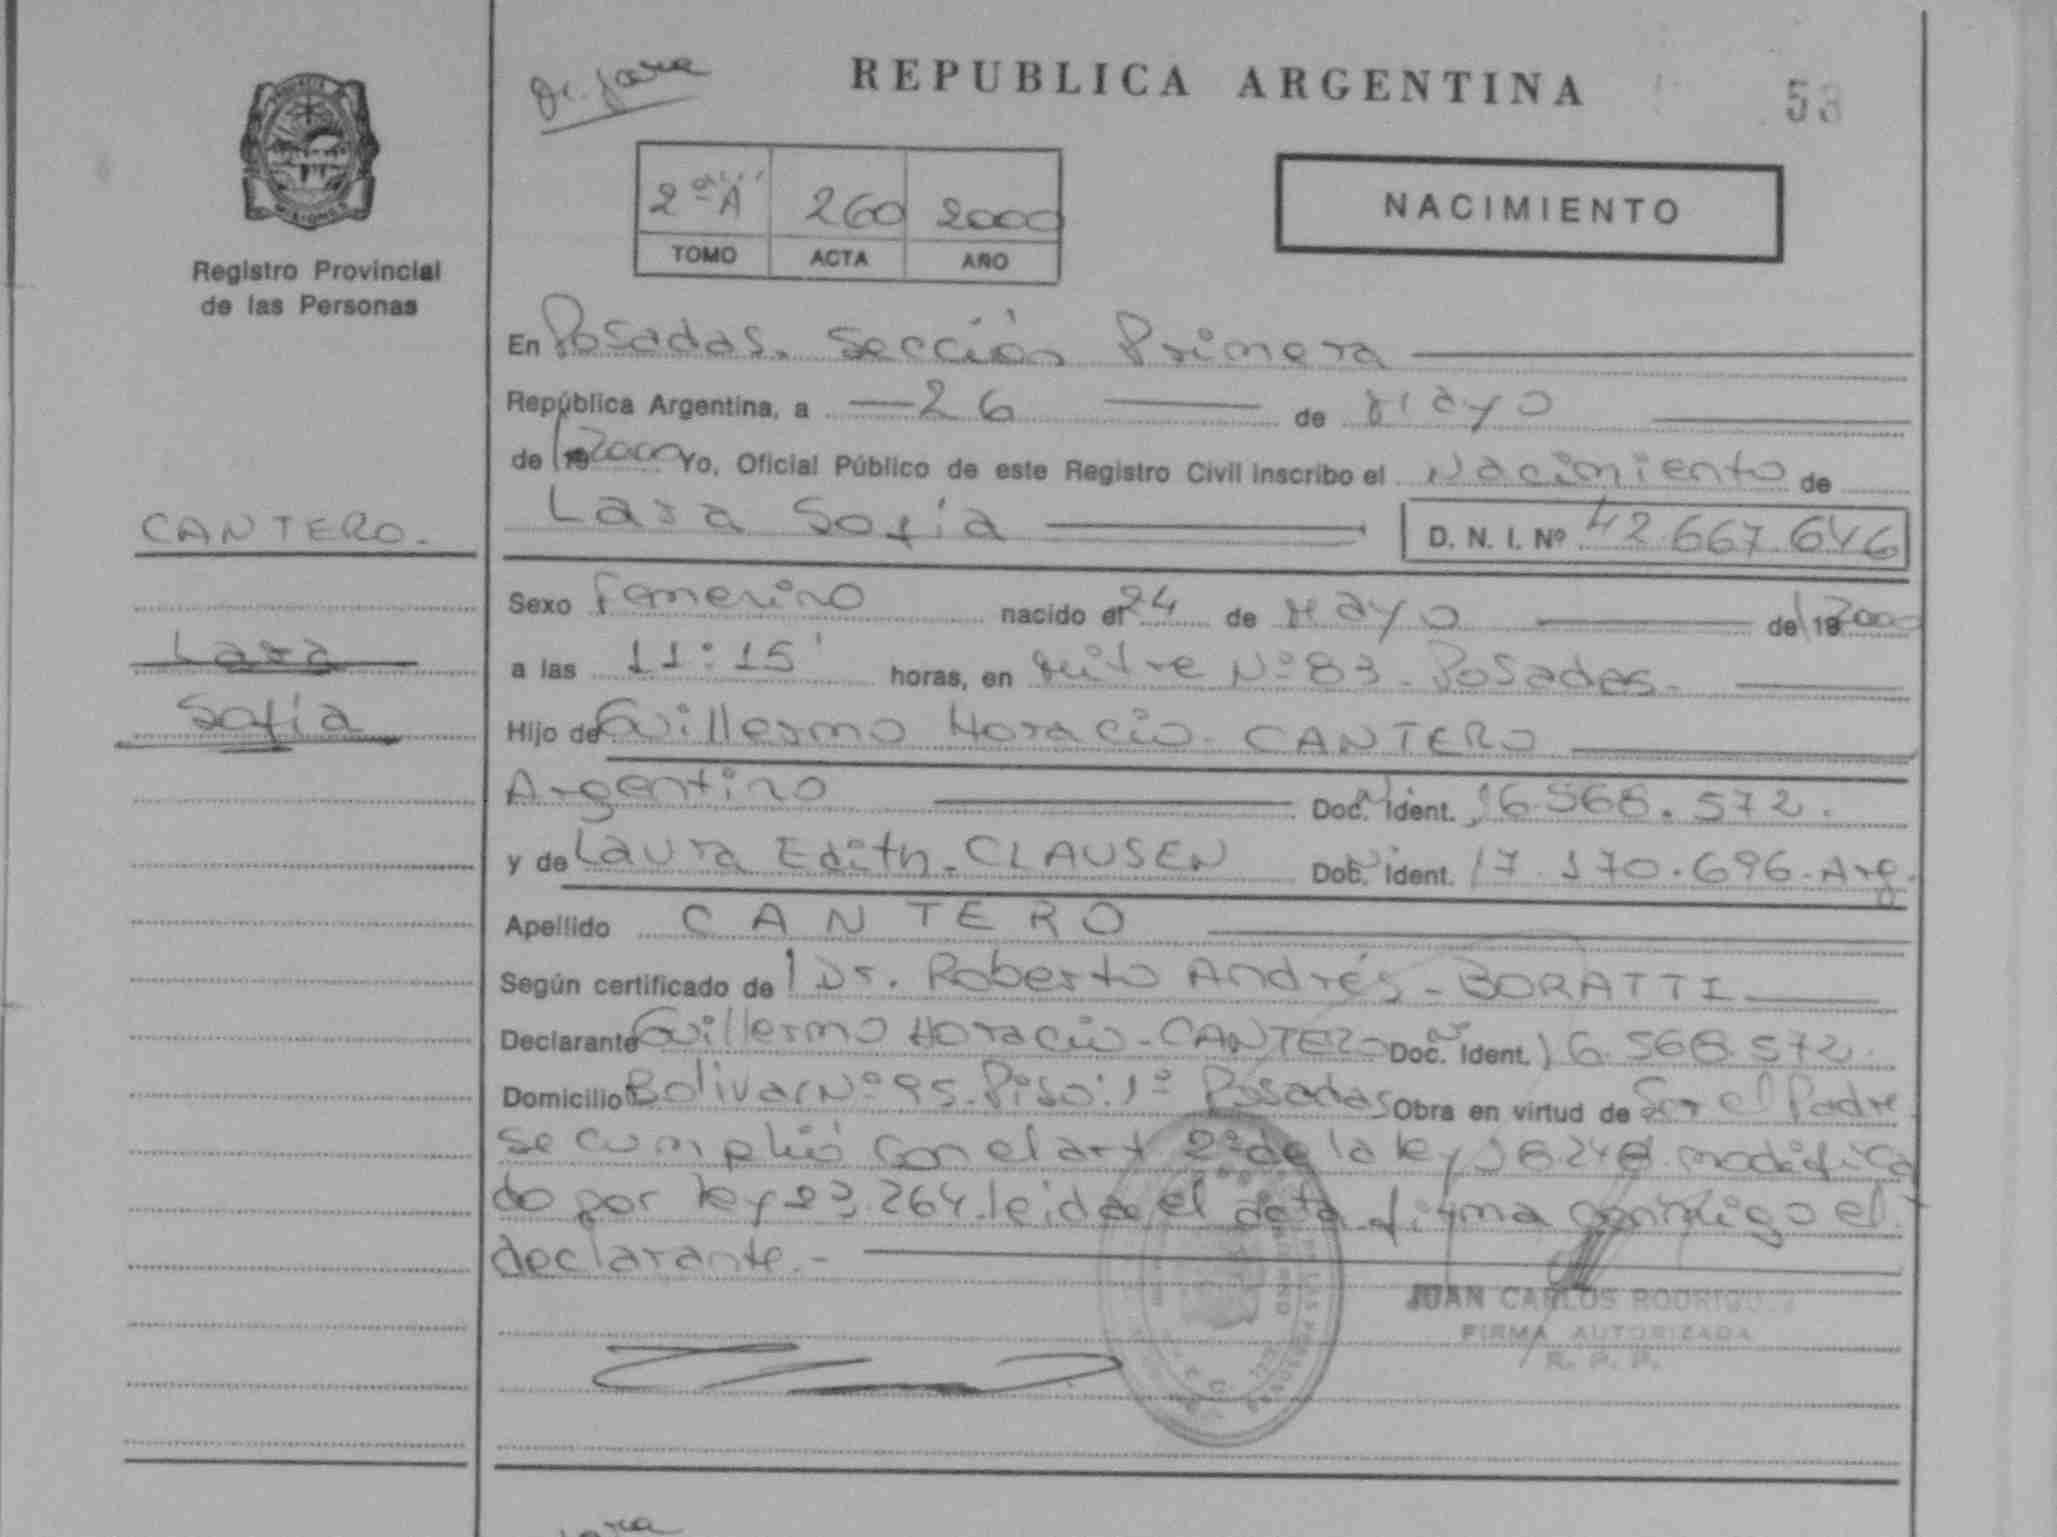 REPUBLICA ARGENTINA
53
MISIONES
Registro Provincial
de las Personas
2ª "A" 260 2000
TOMO ACTA AÑO
NACIMIENTO
En Posadas. Sección Primera
República Argentina, a 26 de Mayo
de 19 2000 Yo, Oficial Público de este Registro Civil inscribo el Nacimiento de
Lara Sofía D. N. I. Nº 42.667.646
CANTERO.
Lara
Sofía
Sexo Femenino nacido el 24 de Mayo de 19 2000
a las 11:15' horas, en Mitre Nº 83. Posadas.
Hijo de Guillermo Horacio. CANTERO
Argentino Doc. Nº Ident. 16.568.572.
y de Laura Edith. CLAUSEN Doc. Nº Ident. 17.170.696. Arg.
Apellido CANTERO
Según certificado de Dr. Roberto Andrés. BORATTI
Declarante Guillermo Horacio. CANTERO Doc. Nº Ident. 16.568.572.
Domicilio Bolivar Nº 95. Piso: 1º Posadas Obra en virtud de Ser el Padre
se cumplió con el art 2º de la ley 18.248. modifica
do por ley 23.264. leida el acta firma conmigo el
declarante.-
JUAN CARLOS RODRIGUEZ
FIRMA AUTORIZADA
R. P. P.